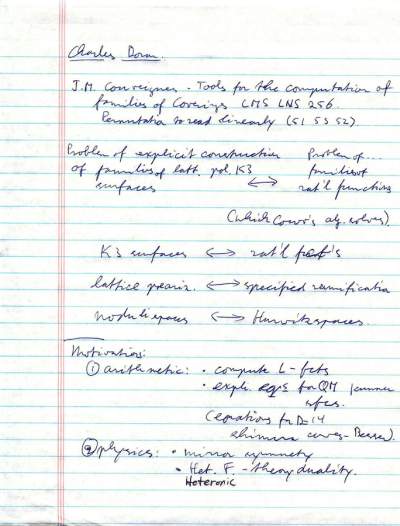 Charles Doran.
J.M. Couveignes - Tools for the computation of
families of Coverings LMS LNS 256.
Permutation to read linearly (51 53 52)
Problem of explicit construction Problem of ...
of families of latt. pol. K3 families of
surfaces ↔ rat'l functions
(which Couv's alg. solves).
K3 surfaces ↔ rat'l fct's
lattice polariz. ↔ specified ramification
moduli spaces ↔ Hurwitz spaces.
Motivation:
① arithmetic: • compute L-fcts
• expl. eqns for QM Kummer
sfces.
(equations for D=14
shimura curves -
② physics: • mirror symmetry
• Het. F. - theory duality.
Heteronic